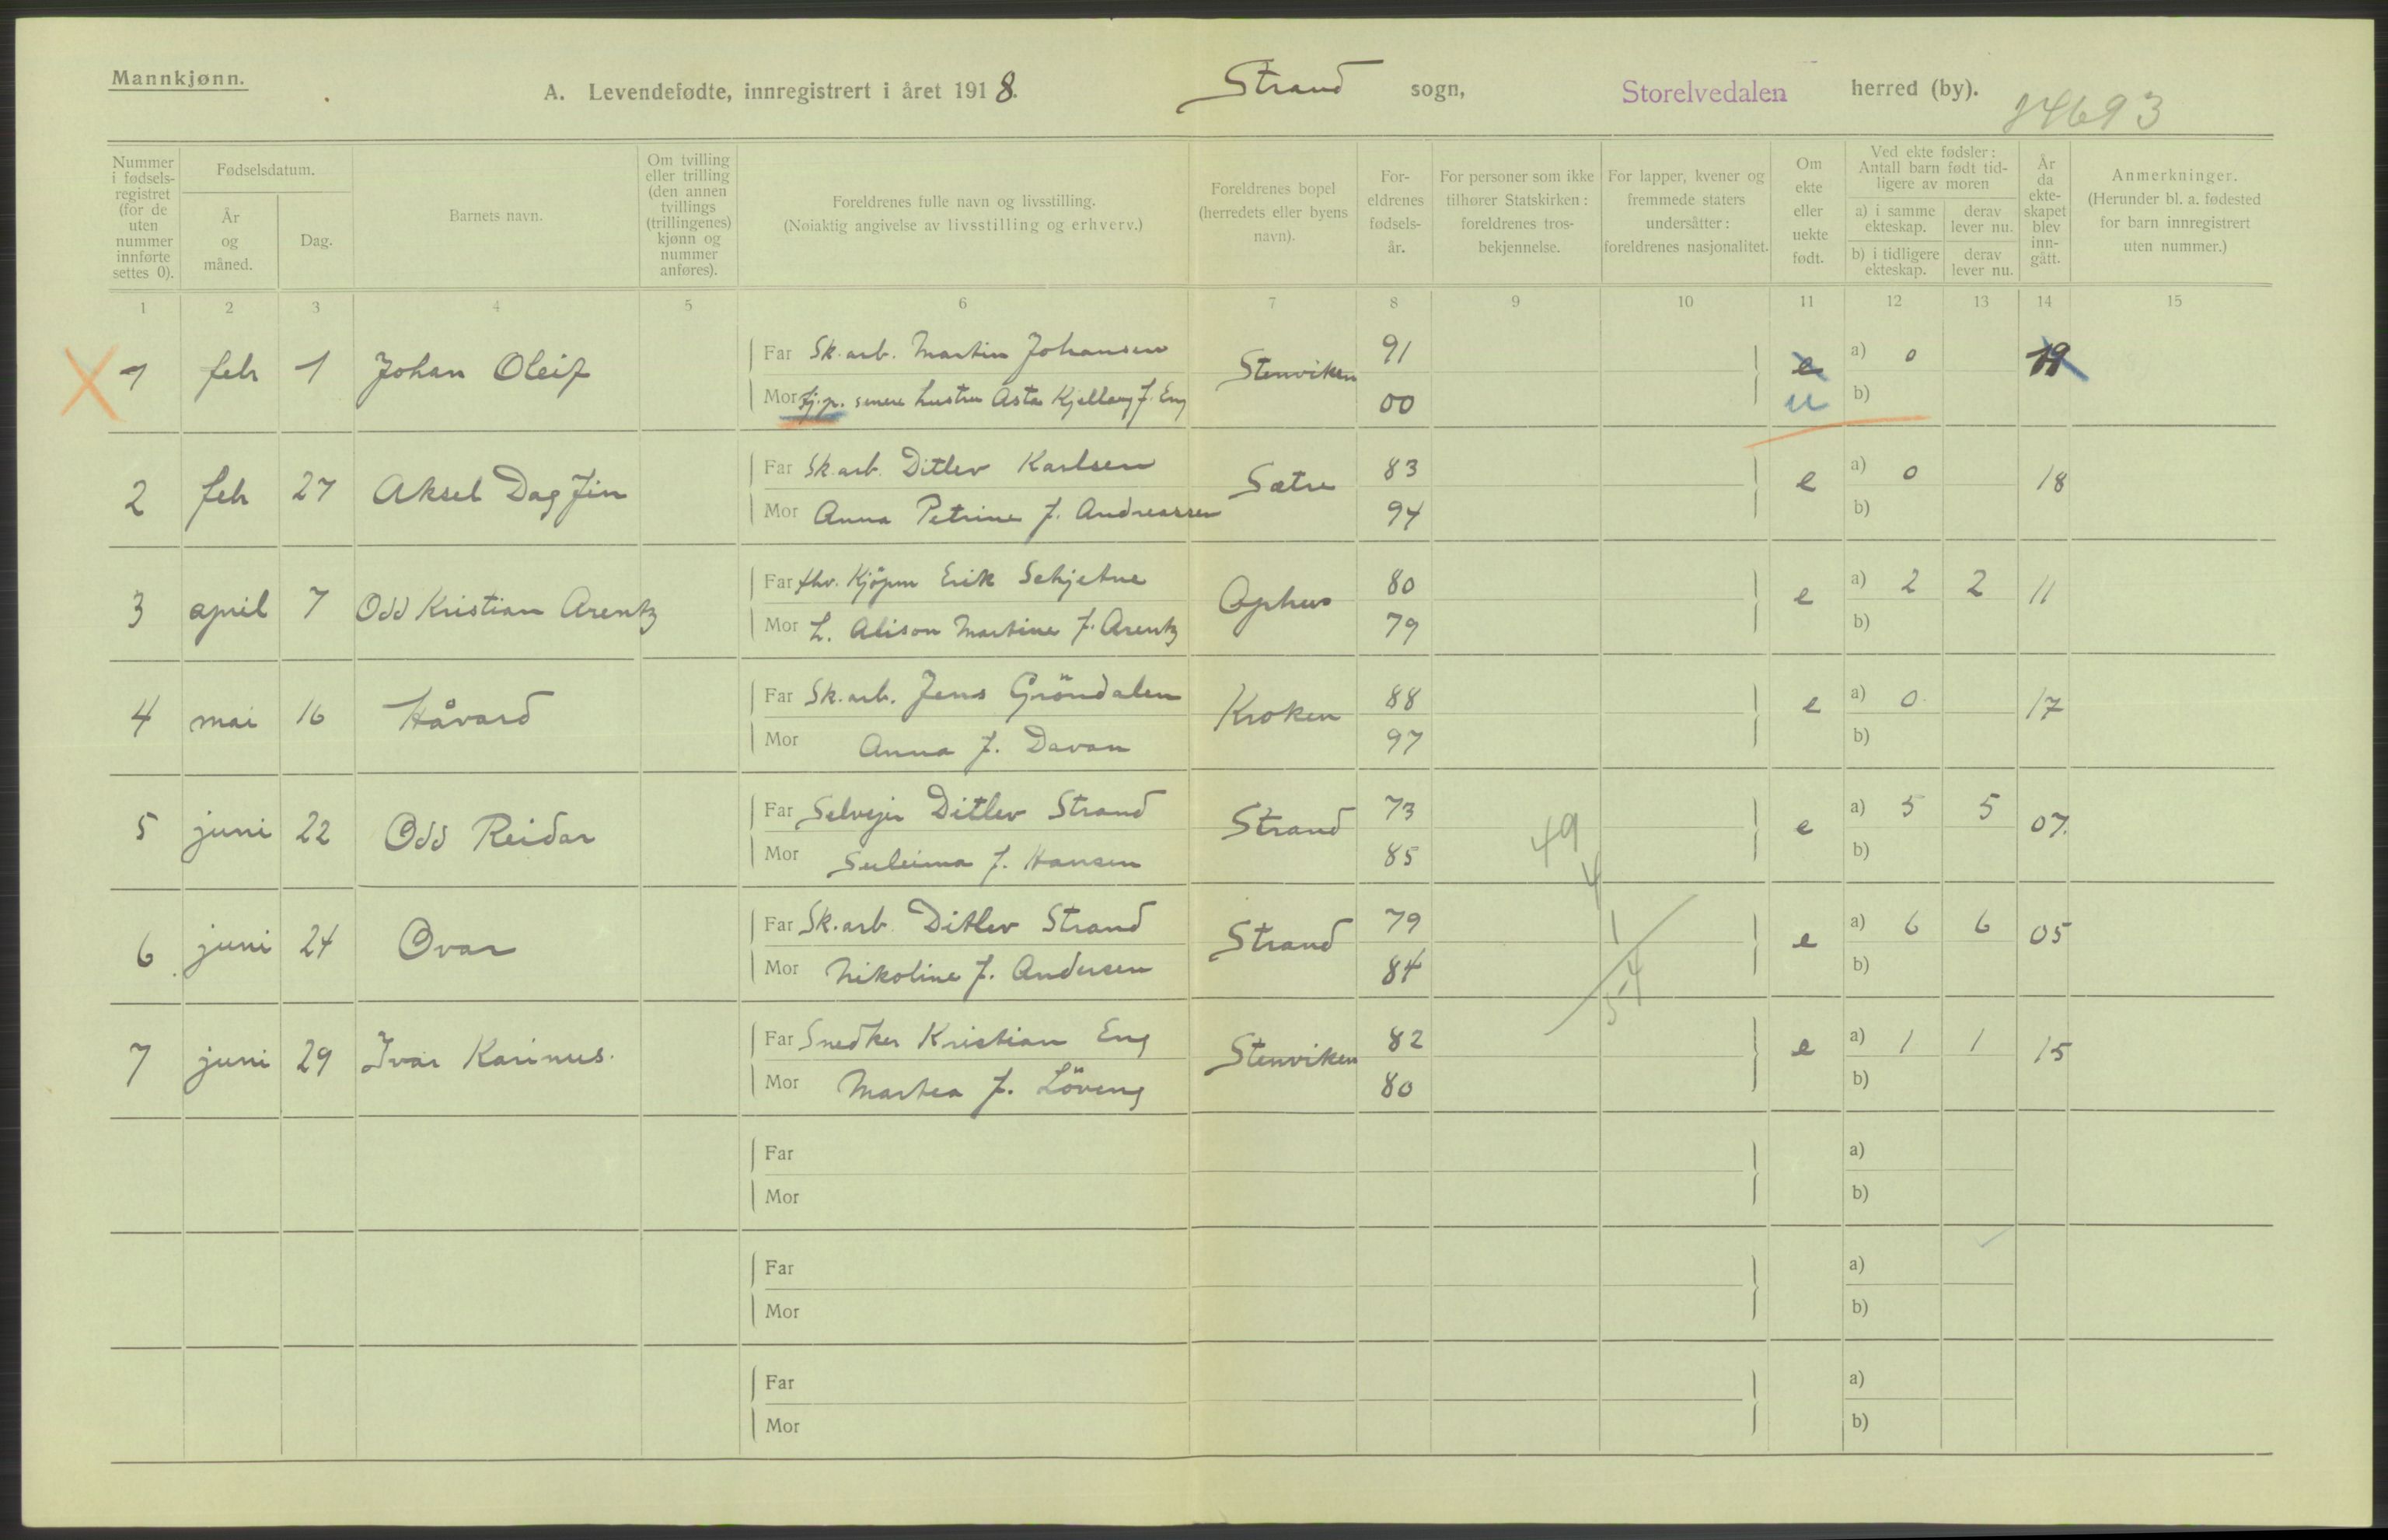 Mannkjønn.
A. Levendefødte, innregistrert i året 1918. Strand sogn, Storelvedalen herred (by).
14693
Nummer i fødselsregistret (for de uten nummer innførte settes 0).
Fødselsdatum.
År og måned.
Dag.
Barnets navn.
Om tvilling eller trilling (den annen tvillings (trillingenes) kjønn og nummer anføres).
Foreldrenes fulle navn og livsstilling.
(Nøiaktig angivelse av livsstilling og erhverv.)
Foreldrenes bopel (herredets eller byens navn).
Foreldrenes fødselsår.
For personer som ikke tilhører Statskirken: foreldrenes trosbekjennelse.
For lapper, kvener og fremmede staters undersåtter: foreldrenes nasjonalitet.
Om ekte eller uekte født.
Ved ekte fødsler: Antall barn født tidligere av moren
a) i samme ekteskap. derav lever nu.
b) i tidligere ekteskap. derav lever nu.
År da ekteskapet blev inngått.
Anmerkninger.
(Herunder bl. a. fødested for barn innregistrert uten nummer.)
1 2 3 4 5 6 7 8 9 10 11 12 13 14 15
1 febr 1 Johan Oleif Far Sk.arb. Martin Johansen Stenviken 91 e a) 0 19
Mor Tj.p. senere hustru Asta Kjellaug f. Eng 00 u b)
2 febr 27 Aksel Dag Finn Far Sk.arb. Ditlev Karlsen Sætre 83 e a) 0 18
Mor Anna Petrine f. Andreassen 94 b)
3 april 7 Odd Kristian Arentz Far fhv. Kjøpm Erik Schjetne Ophus 80 e a) 2 2 11
Mor L. Alison Martine f. Arentz 79 b)
4 mai 16 Håvard Far Sk.arb. Jens Gröndalen Kroken 88 e a) 0 17
Mor Anna f. Davan 97 b)
5 juni 22 Odd Reidar Far Selvejer Ditlev Strand Strand 73 e a) 5 5 07.
Mor f. Hansen 85 b)
49
4
1
54
6 juni 24 Ovar Far Sk.arb. Ditlev Strand Strand 79 e a) 6 6 05
Mor Nikoline f. Andersen 84 b)
7 juni 29 Ivar Karinus. Far Snedker Kristian Eng Stenviken 82 e a) 1 1 15
Mor Martea f. Löveng 80 b)
Far a)
Mor b)
Far a)
Mor b)
Far a)
Mor b)